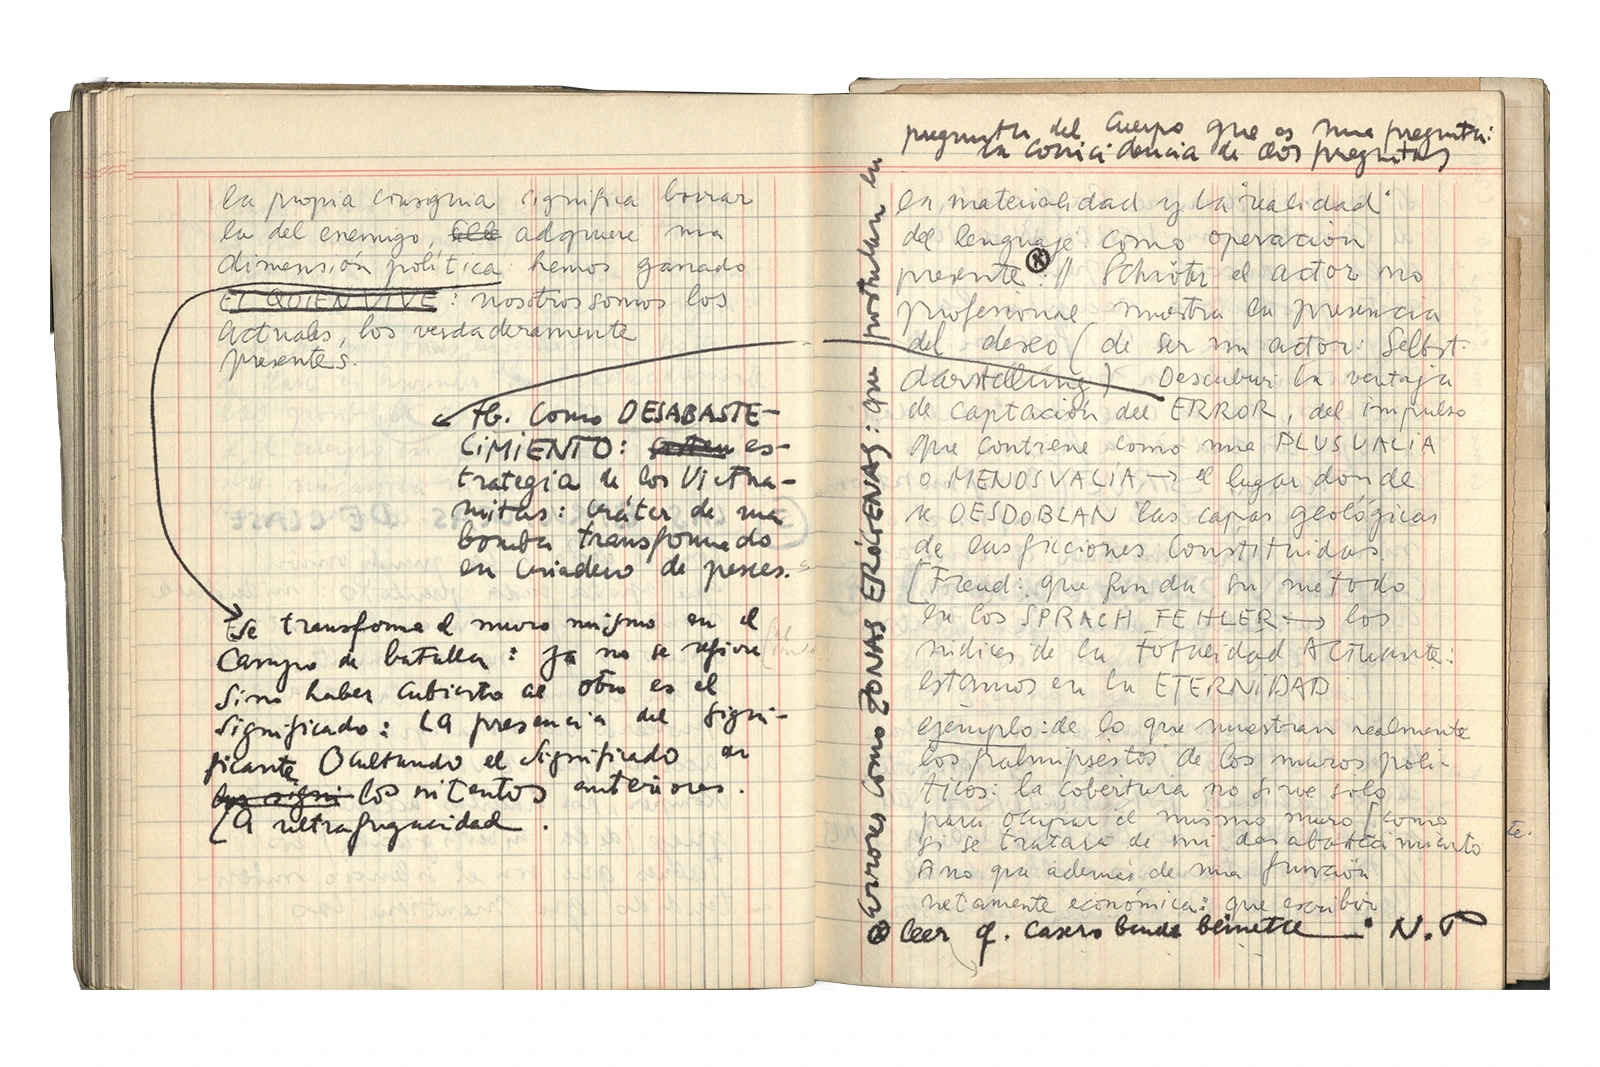 la propia consigna significa borrar
la del enemigo, adquiere una
dimensión política: hemos ganado
EL QUIEN VIVE: nosotros somos los
actuales, los verdaderamente
presentes.
Tb. como DESABASTE-
CIMIENTO: es-
trategia de los Vietna-
mitas: cráter de una
bomba transformado
en criadero de peces.
Se transforma el muro mismo en el
campo de batalla: ya no se refiere
sino haber cubierto al otro es el
significado: La presencia del signi-
ficante Ocultando el significado en
los intentos anteriores.
La ultrafugacidad.
pregunta del cuerpo que es una pregunta:
la coincidencia de dos preguntas
la materialidad y la "realidad"
del lenguaje como operación
presente. // Schröter el actor no
profesional muestra la presencia
del deseo (de ser un actor: Selbst-
darstellung) Descubrir la ventaja
de captación del ERROR, del impulso
que contiene como una PLUSVALIA
o MENOSVALIA → el lugar donde
se DESDOBLAN las capas geológicas
de las ficciones constituidas.
[Freud: que funda su método
en los SPRACH FEHLER → los
indices de la Totalidad ACTUANTE:
estamos en la ETERNIDAD
ejemplo: de lo que muestran realmente
los palimpsestos de los muros polí-
ticos: la cobertura no sirve solo
para ocupar el mismo muro [como
si se tratara de un desabastecimiento
sino que además de una función
netamente económica: que escribir
leer q. N.P
Errores como ZONAS ERÓGENAS: que postulan la